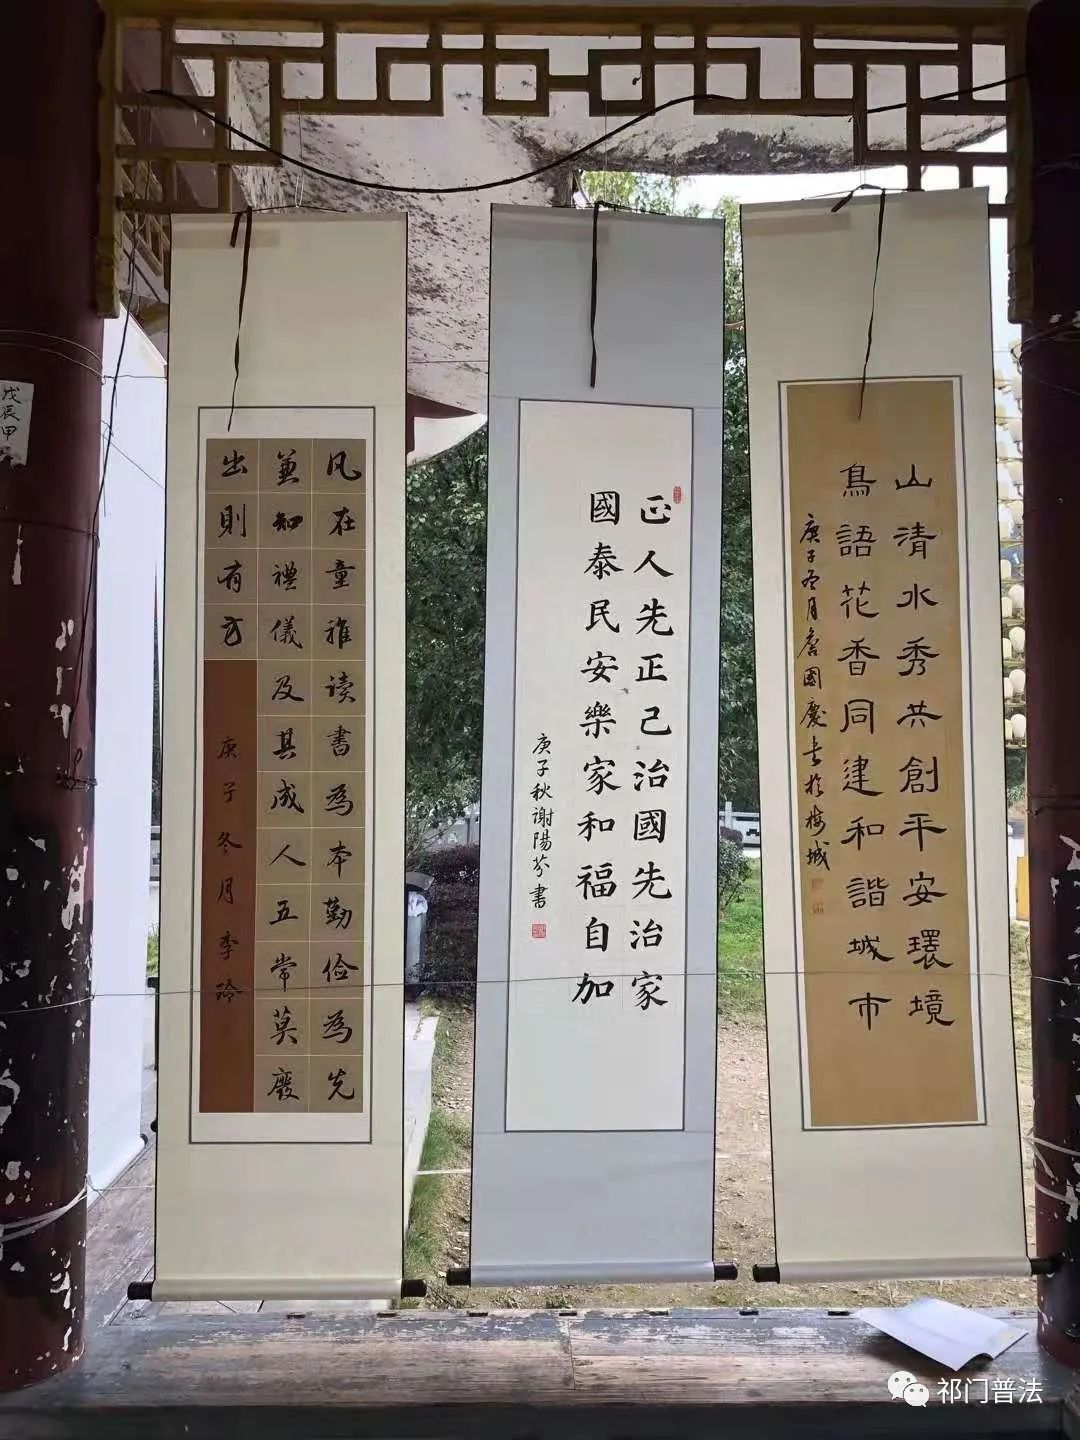 山清水秀共創平安環境
鳥語花香同建和諧城市
庚子冬月詹國慶书於梅城
正人先正己治國先治家
國泰民安樂家和福自加
庚子秋謝陽芬書
凡在童稚读書為本勤俭為先
兼知禮儀及其成人五常莫廢
出則有方
庚子冬月李玲
戊辰甲
祁门普法